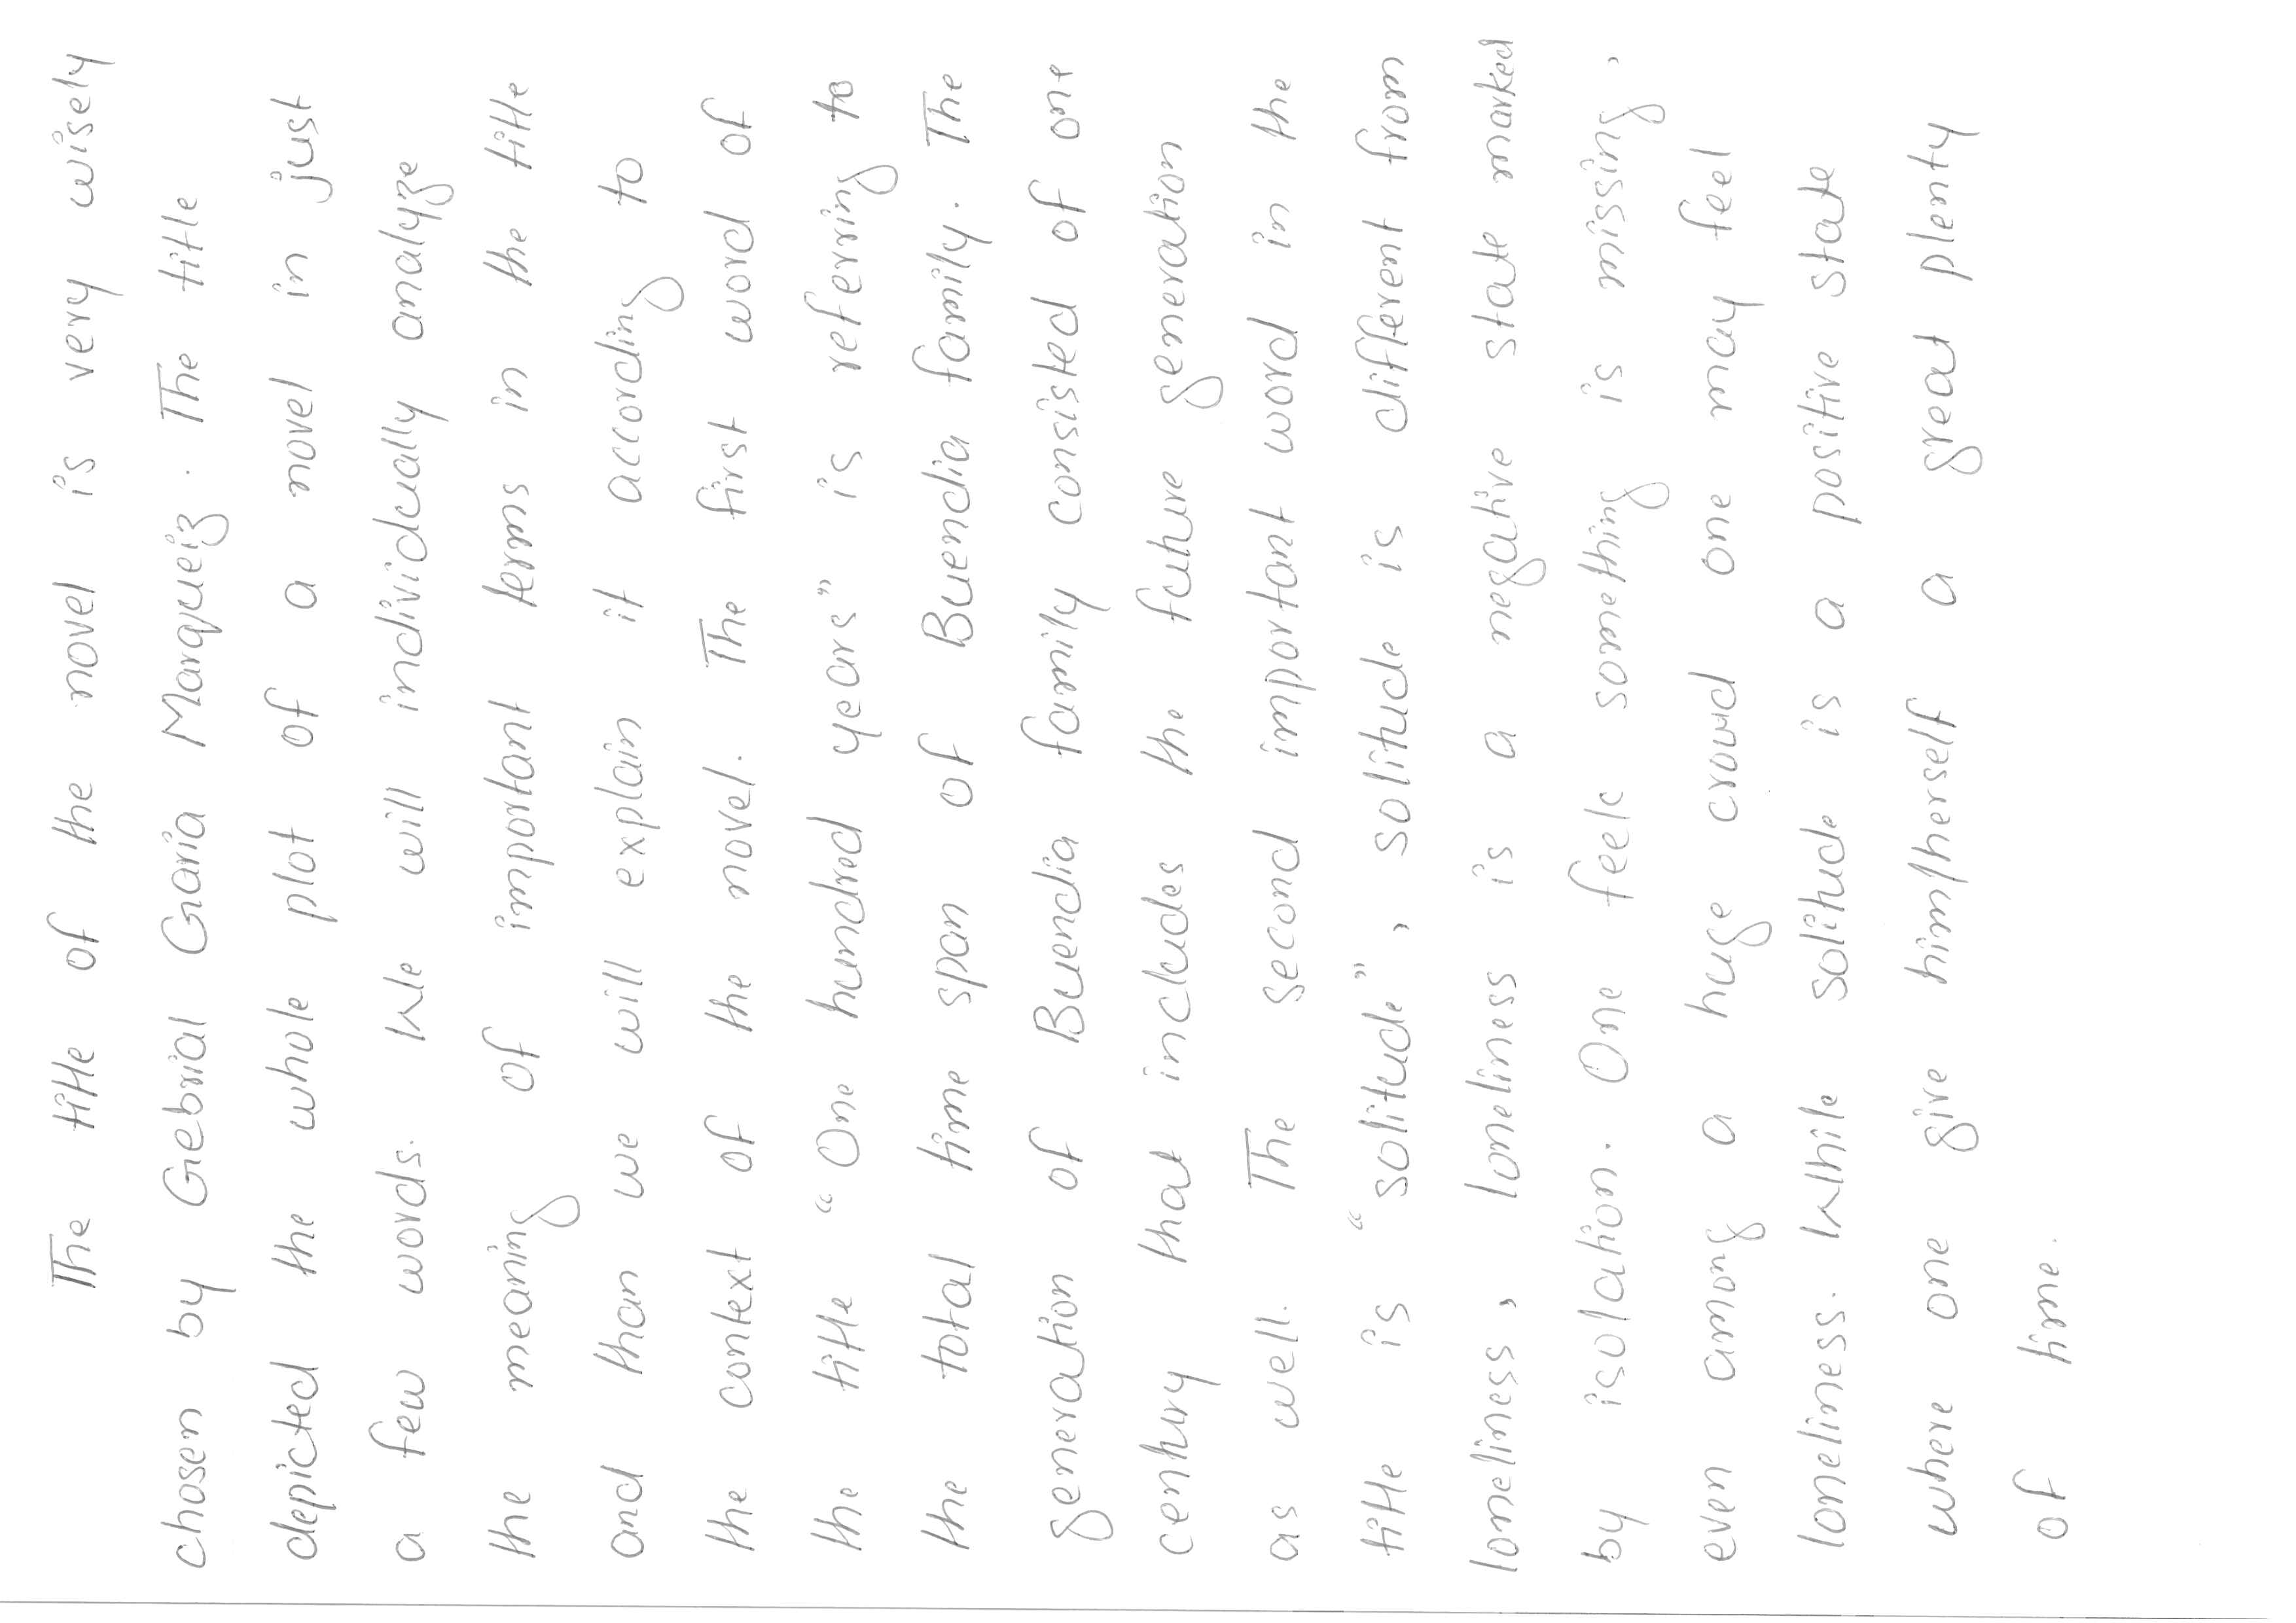 The title of the novel is very wisely
chosen by Gebrial Garia Marqueiz. The title
depicted the whole plot of a novel in just
a few words. We will individually analyze
the meaning of important terms in the title
and than we will explain it according to
the context of the novel. The first word of
the title "One hundred years" is referring to
the total time span of Buendia family. The
generation of Buendia family consisted of one
century that includes the future generation
as well. The second important word in the
title is "solitude", solitude is different from
loneliness, loneliness is a negative state marked
by isolation. One feels something is missing,
even among a huge crowd one may feel
loneliness. While solitude is a positive state
where one give him/herself a great plenty
of time.